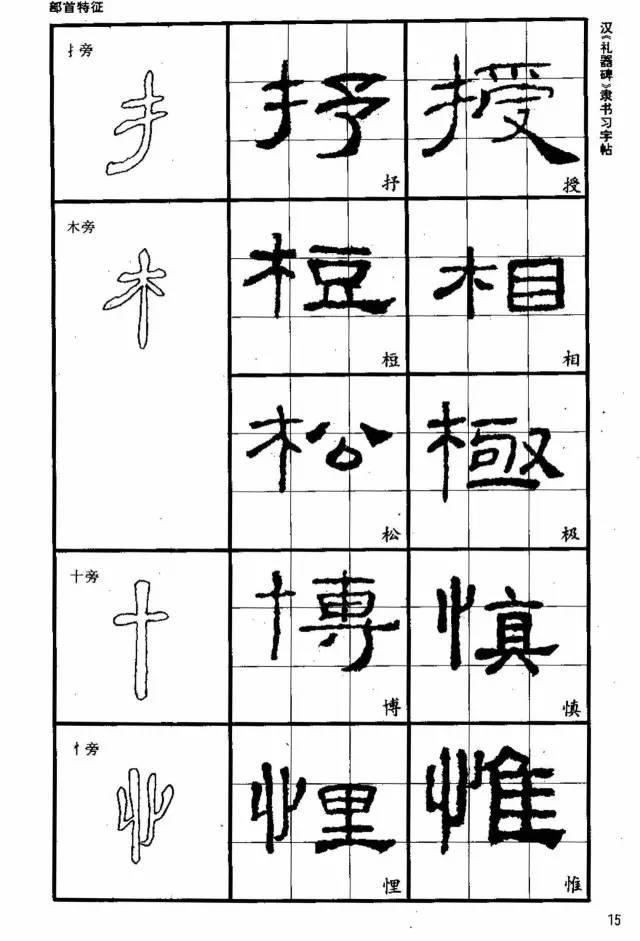 部首特征
汉《礼器碑》隶书习字帖
扌旁
抒 授
抒
授
木旁
木
梪 相
梪
相
松 極
松
极
十旁
十
博 慎
博
慎
忄旁
忄
悝 惟
悝
惟
15